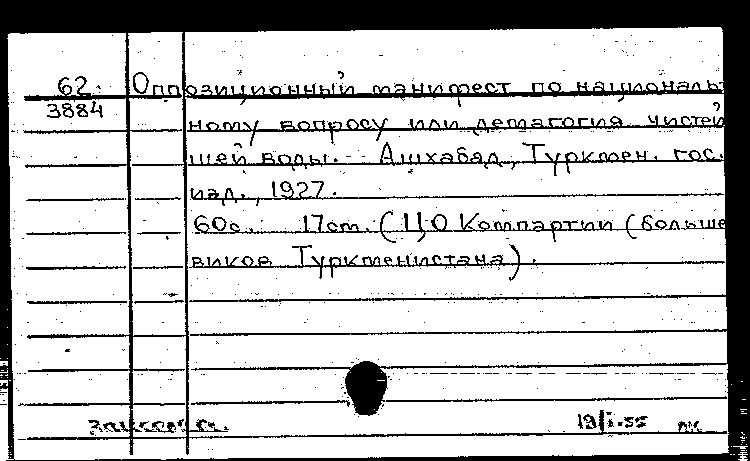 62 Оппозиционный манифест по националь
3884
ному вопросу или демагогия чистей
шей воды. - Ашхабад, Туркмен. гос.
изд., 1927.
60с. 17см. (ЦО Компартии (больше
виков Туркменистана).
19/I-55